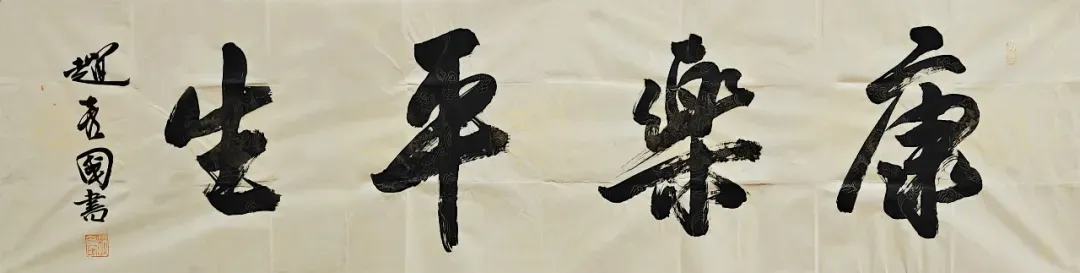 康樂平生
趙國書